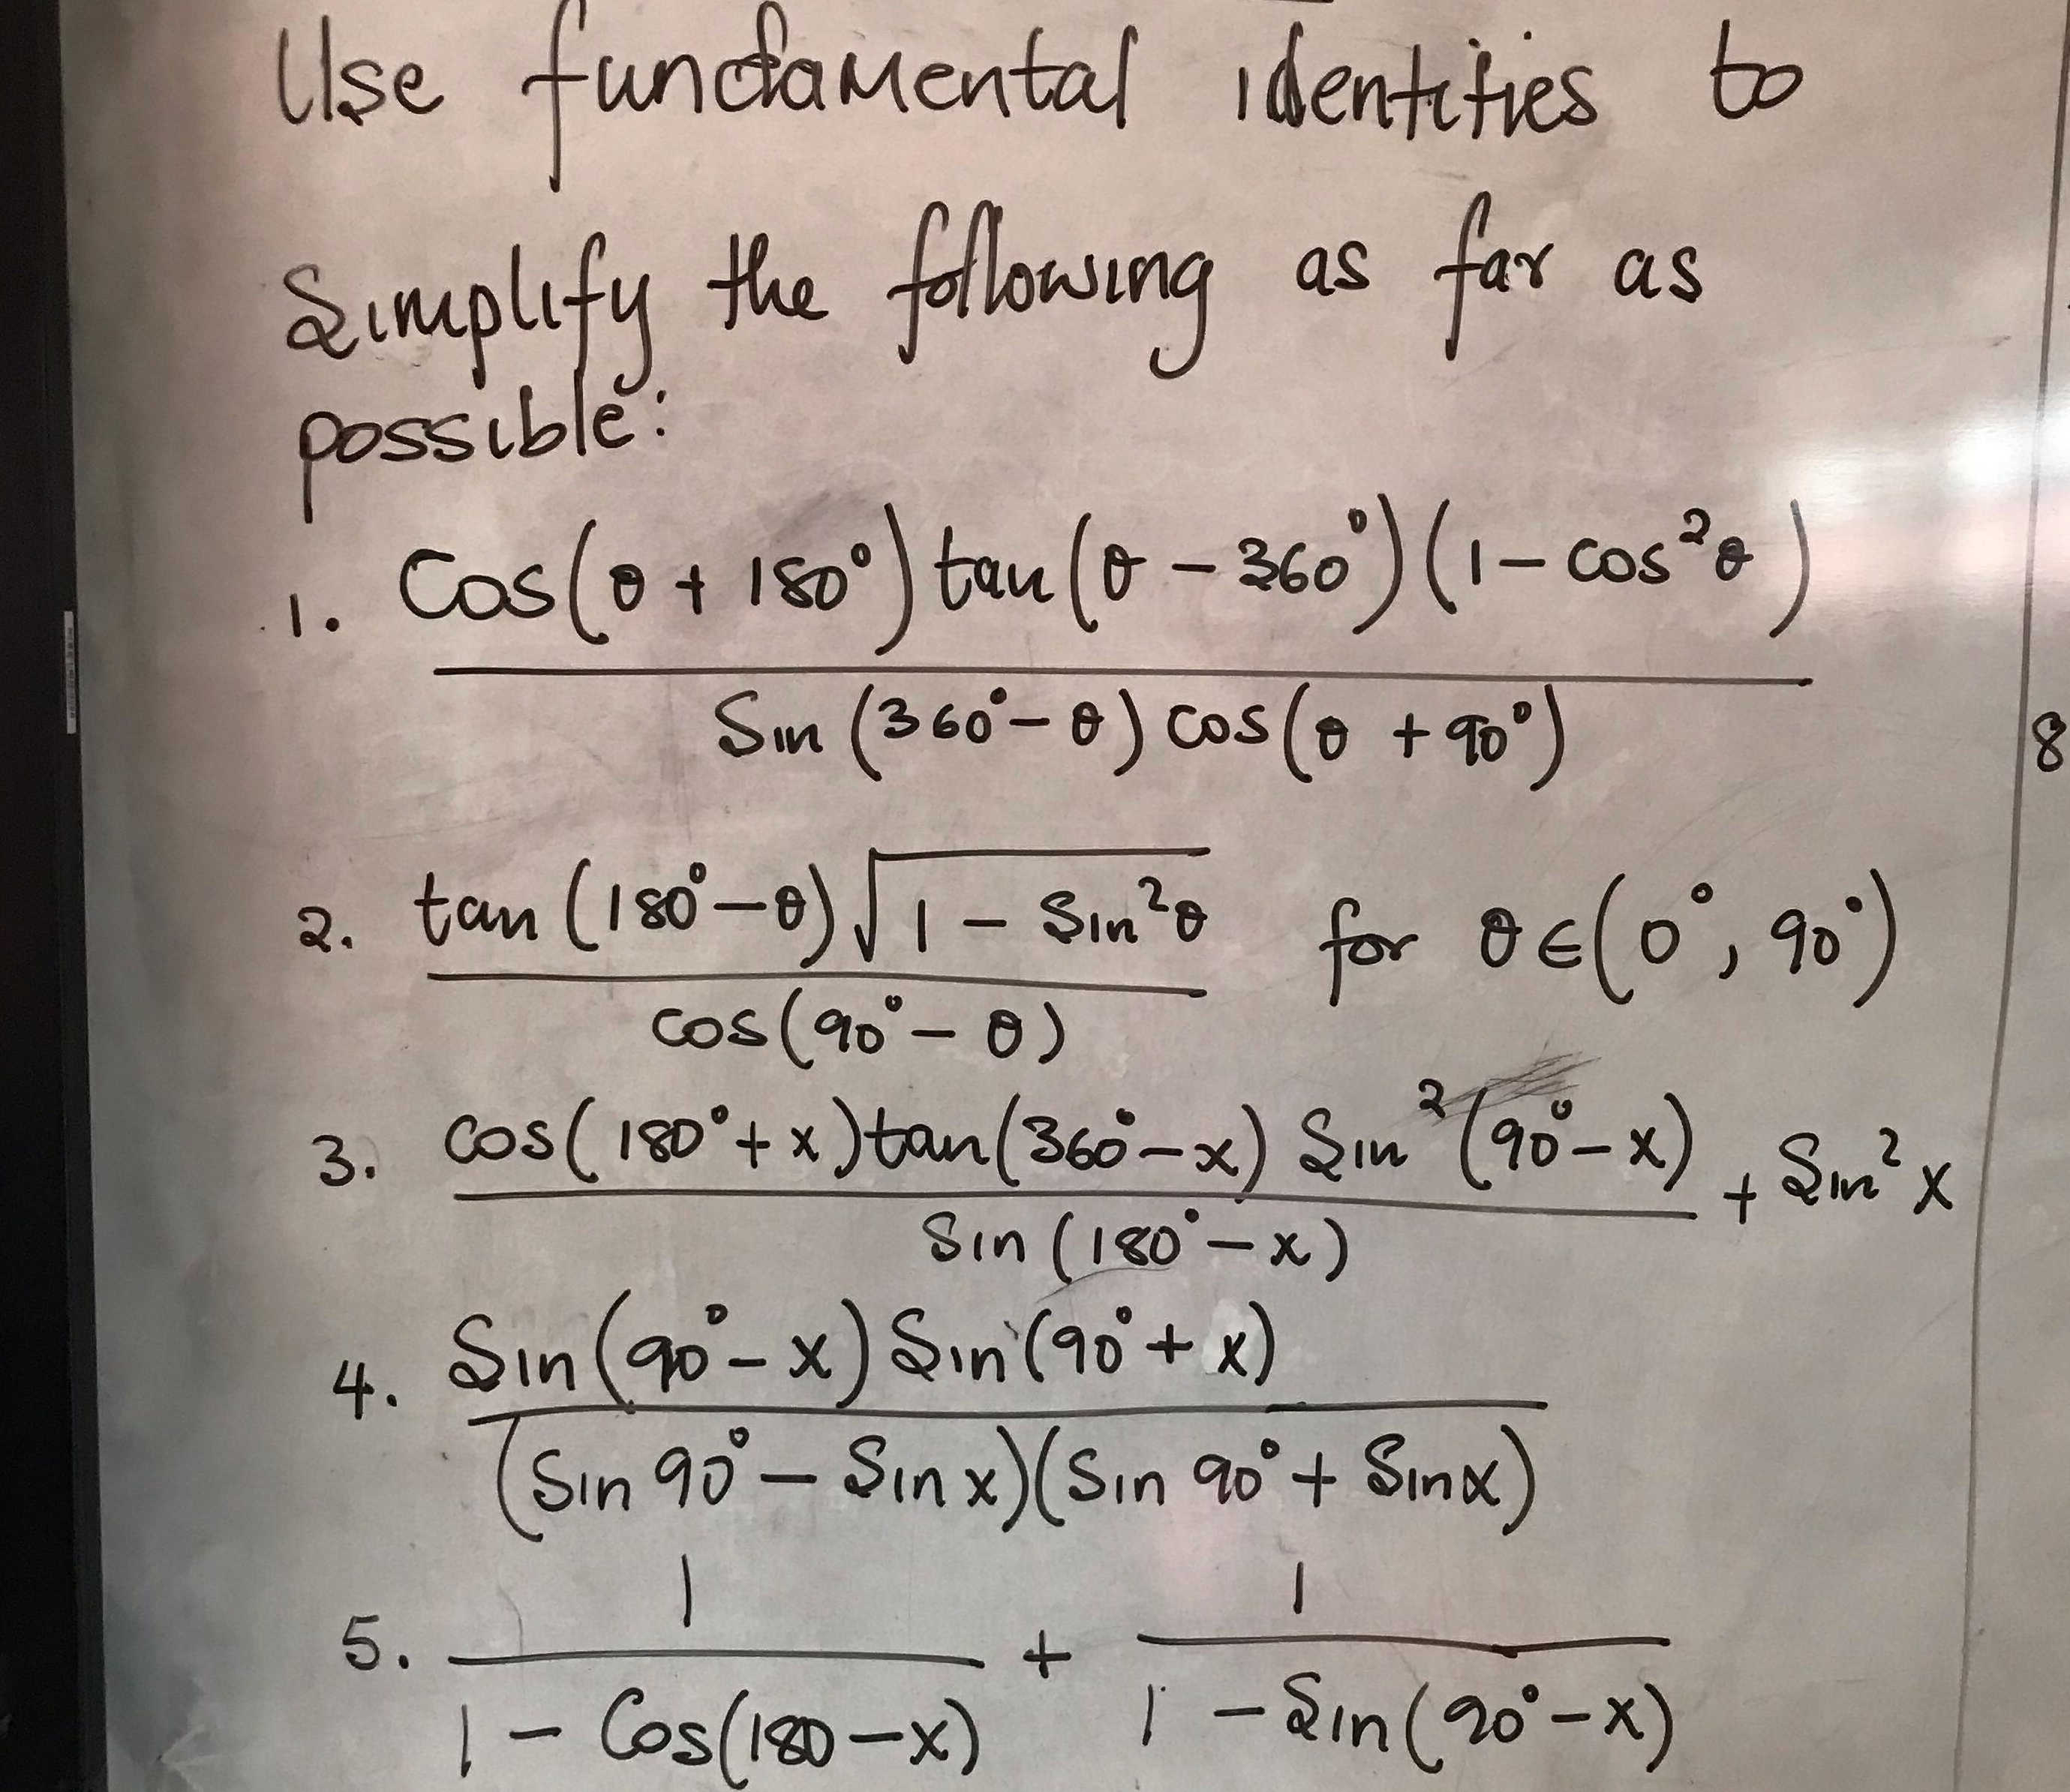 Use fundamental identities to
Simplify the following as far as
possible:
1. Cos(θ + 180°) tan(θ − 360°)(1 − cos²θ)
Sin(360° − θ) cos(θ + 90°)
8
2. tan(180° − θ)√1 − Sin²θ for θ ∈ (0°, 90°)
cos(90° − θ)
3. cos(180° + x) tan(360° − x) Sin²(90° − x) + Sin²x
Sin(180° − x)
4. Sin(90° − x) Sin(90° + x)
(Sin 90° − Sin x)(Sin 90° + Sin x)
5. 1 + 1
1 − Cos(180 − x) 1 − Sin(90° − x)